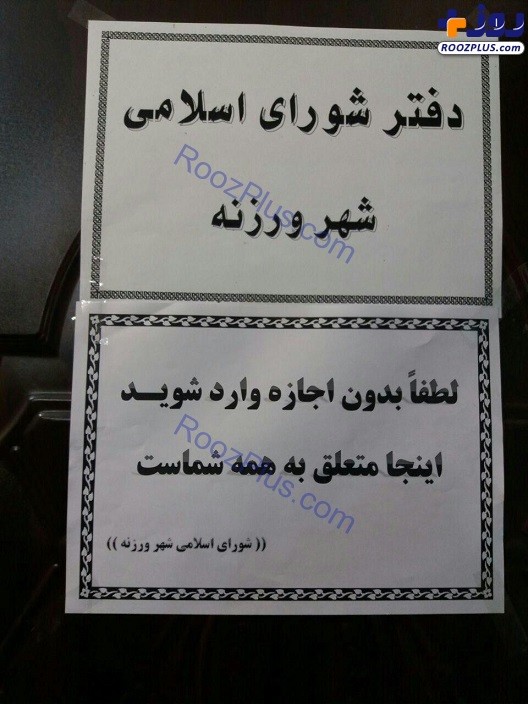 روز
ROOZPLUS.com
دفتر شورای اسلامی
RoozPlus.com
شهر ورزنه
لطفاً بدون اجازه وارد شوید
RoozPlus.com
اینجا متعلق به همه شماست
(( شورای اسلامی شهر ورزنه ))